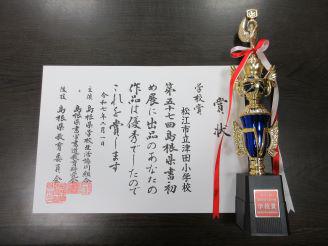 賞状
学校賞
松江市立津田小学校
第五十七回島根県書初
め展に出品のあなたの
作品は優秀でしたので
これを賞します
令和七年八月一日
主催 島根県学校生活協同組合
島根県書写書道教育研究会
後援 島根県教育委員会
学校賞